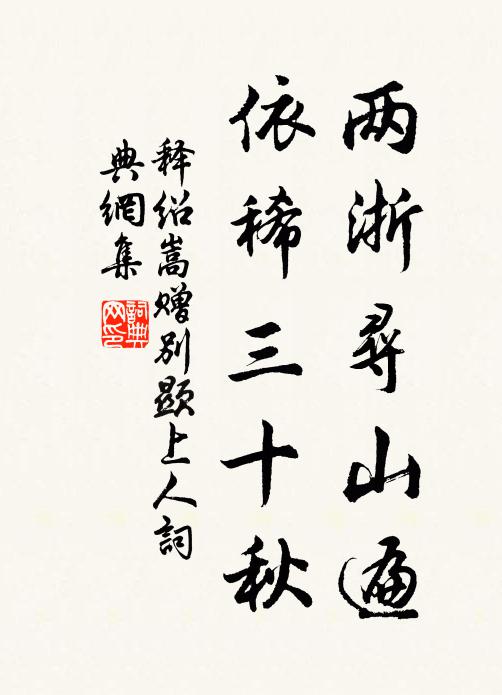 两浙寻山遍
依稀三十秋
释绍嵩赠别显上人词
典網集
詞典
网印